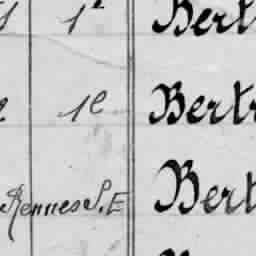 1e Bert
1e Bert
Rennes S.E Bert